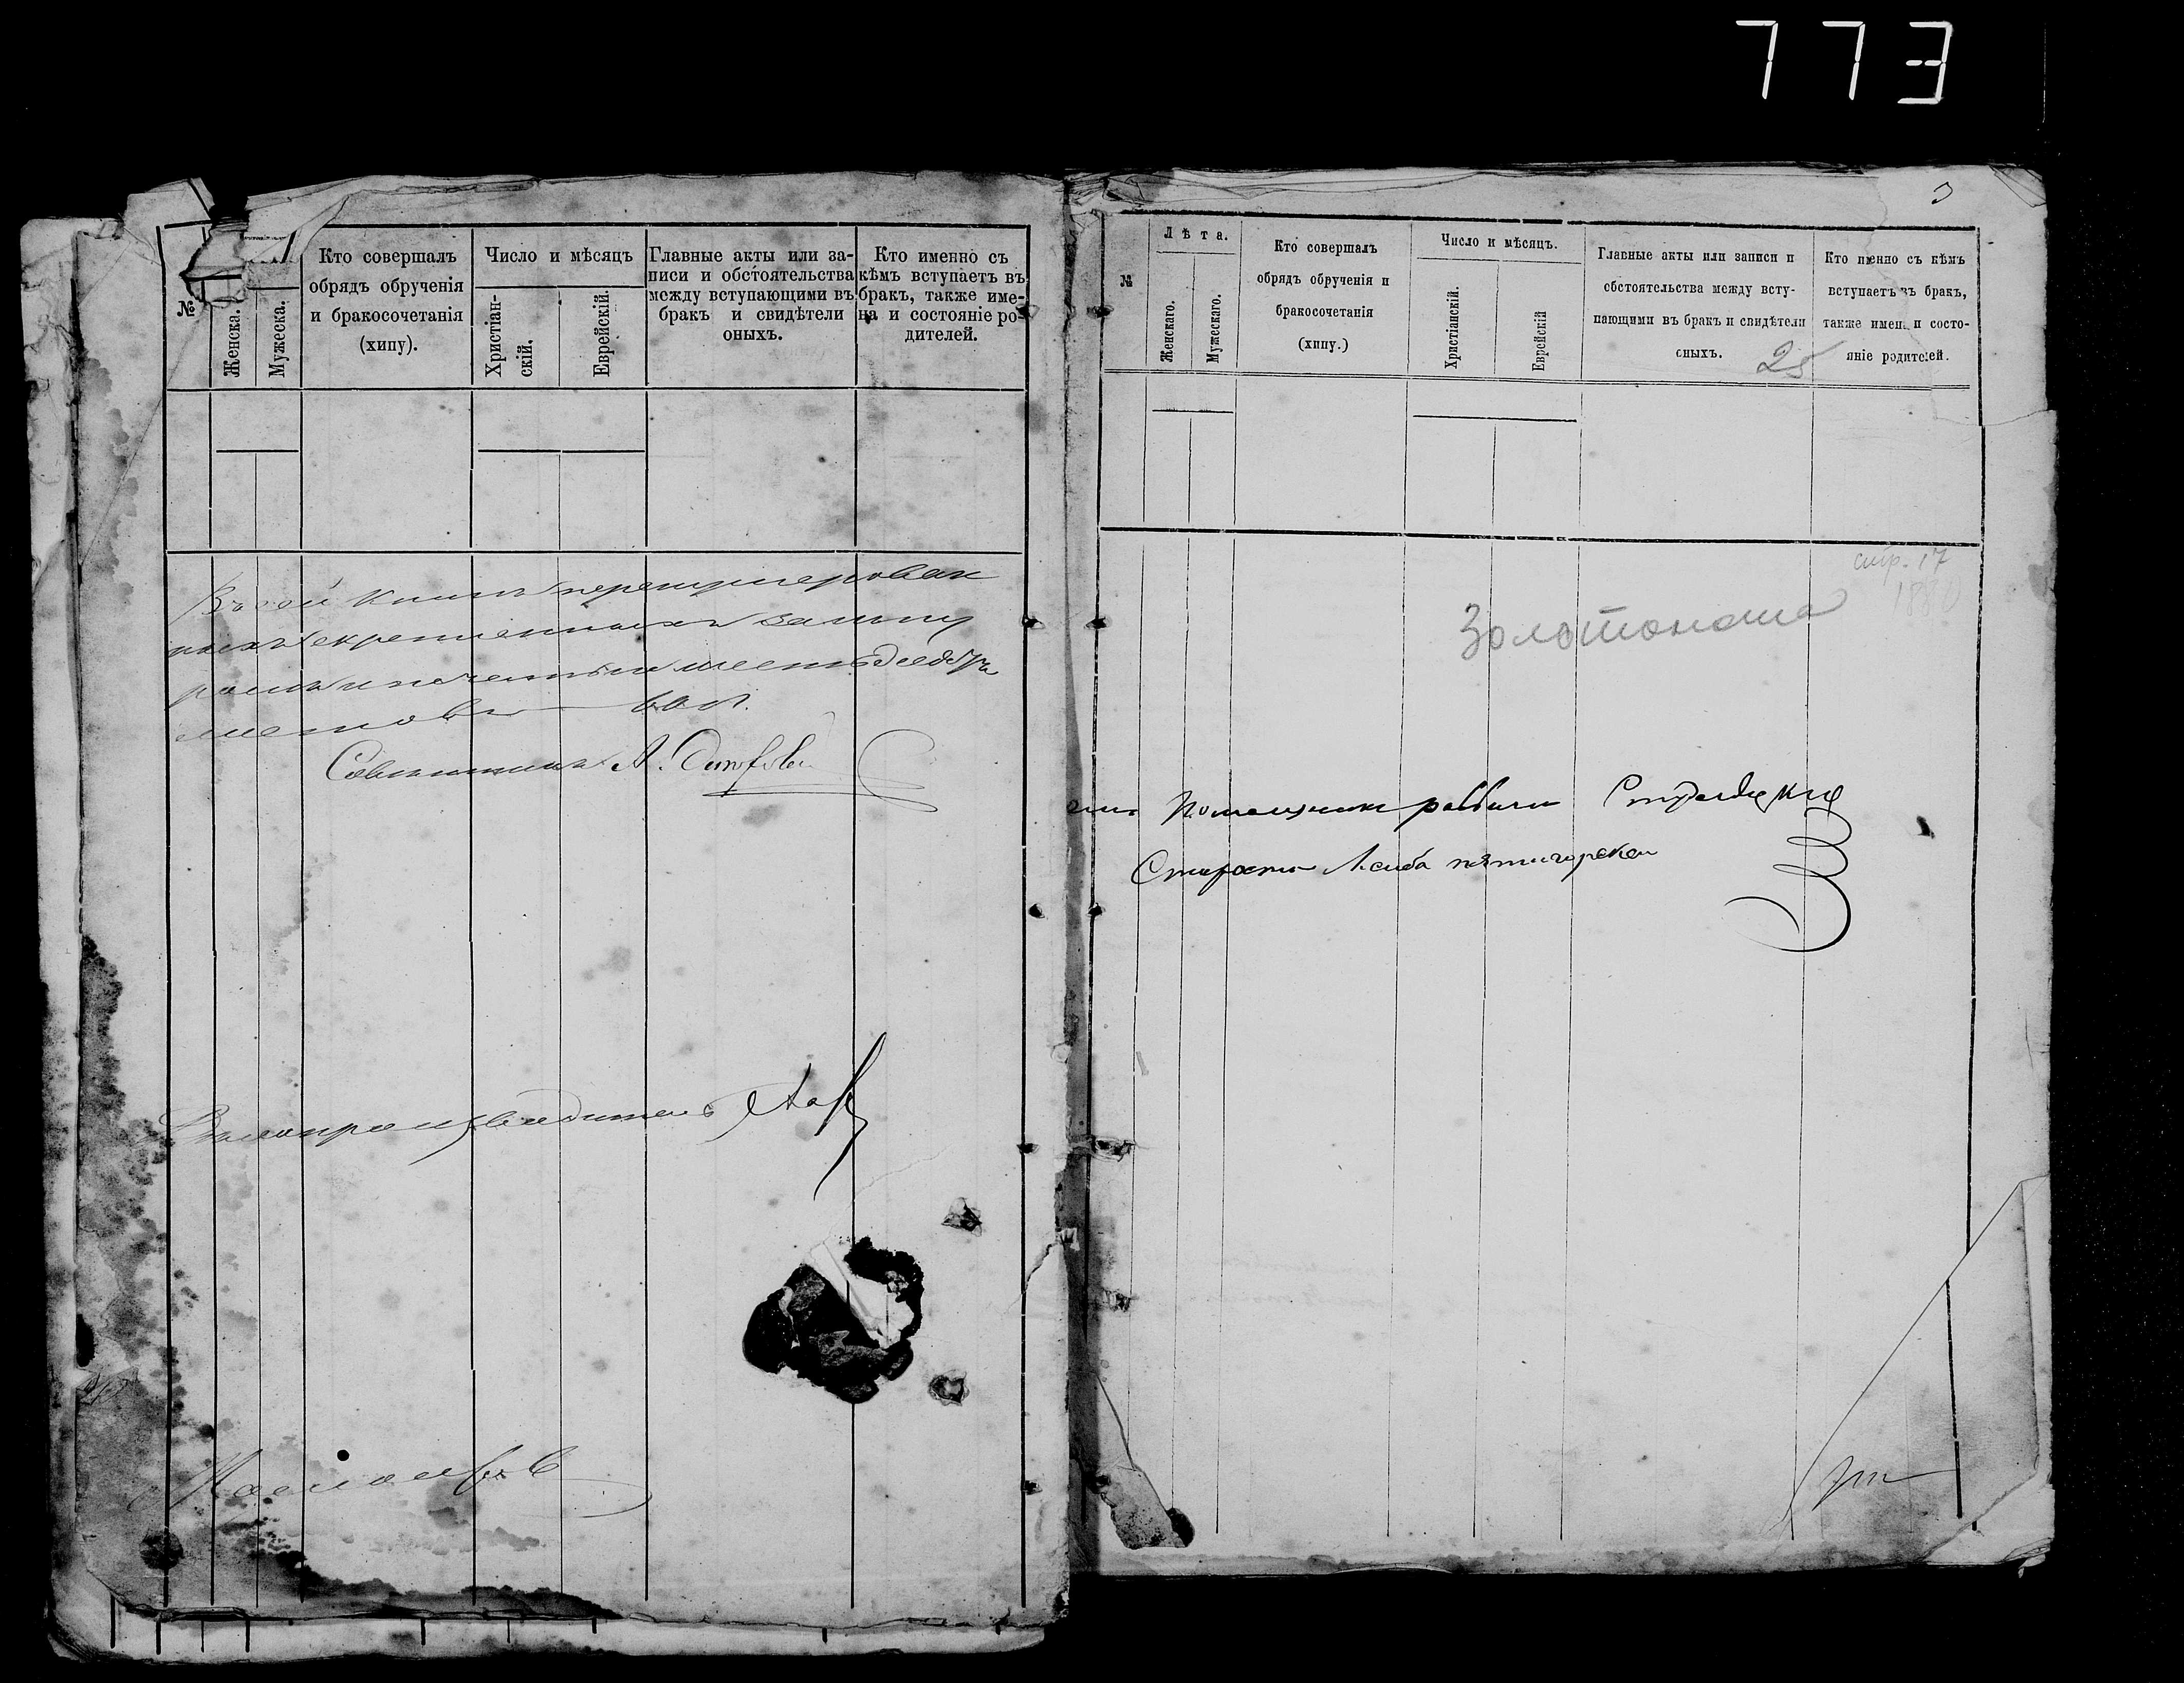 773
№
Женска.
Мужеска.
Кто совершалъ
обрядъ обрученія
и бракосочетанія
(хипу).
Число и мѣсяцъ
Христіан-
скій.
Еврейскій.
Главные акты или за-
писи и обстоятельства
между вступающими въ
бракъ и свидѣтели
оныхъ.
Кто именно съ
кѣмъ вступаетъ въ
бракъ, также име-
на и состояніе ро-
дителей.
Въ сей книгѣ перенумерован
ныхъ скрепленныхъ за шну
ромъ и печатью шестьдесятъ
листовъ 60 л.
Совѣтникъ А.
Дѣлопроизводитель
3
№
Лѣта.
Женскаго.
Мужескаго.
Кто совершалъ
обрядъ обрученія и
бракосочетанія
(хипу.)
Число и мѣсяцъ.
Христіанскій.
Еврейскій
Главные акты или записи и
обстоятельства между всту-
пающими въ бракъ и свидѣтели
оныхъ.
25
Кто именно съ кѣмъ
вступаетъ въ бракъ,
также имена и состо-
яніе родителей.
стр. 17
1880
Золотоноша
Помощникъ раввина
Староста Лейба